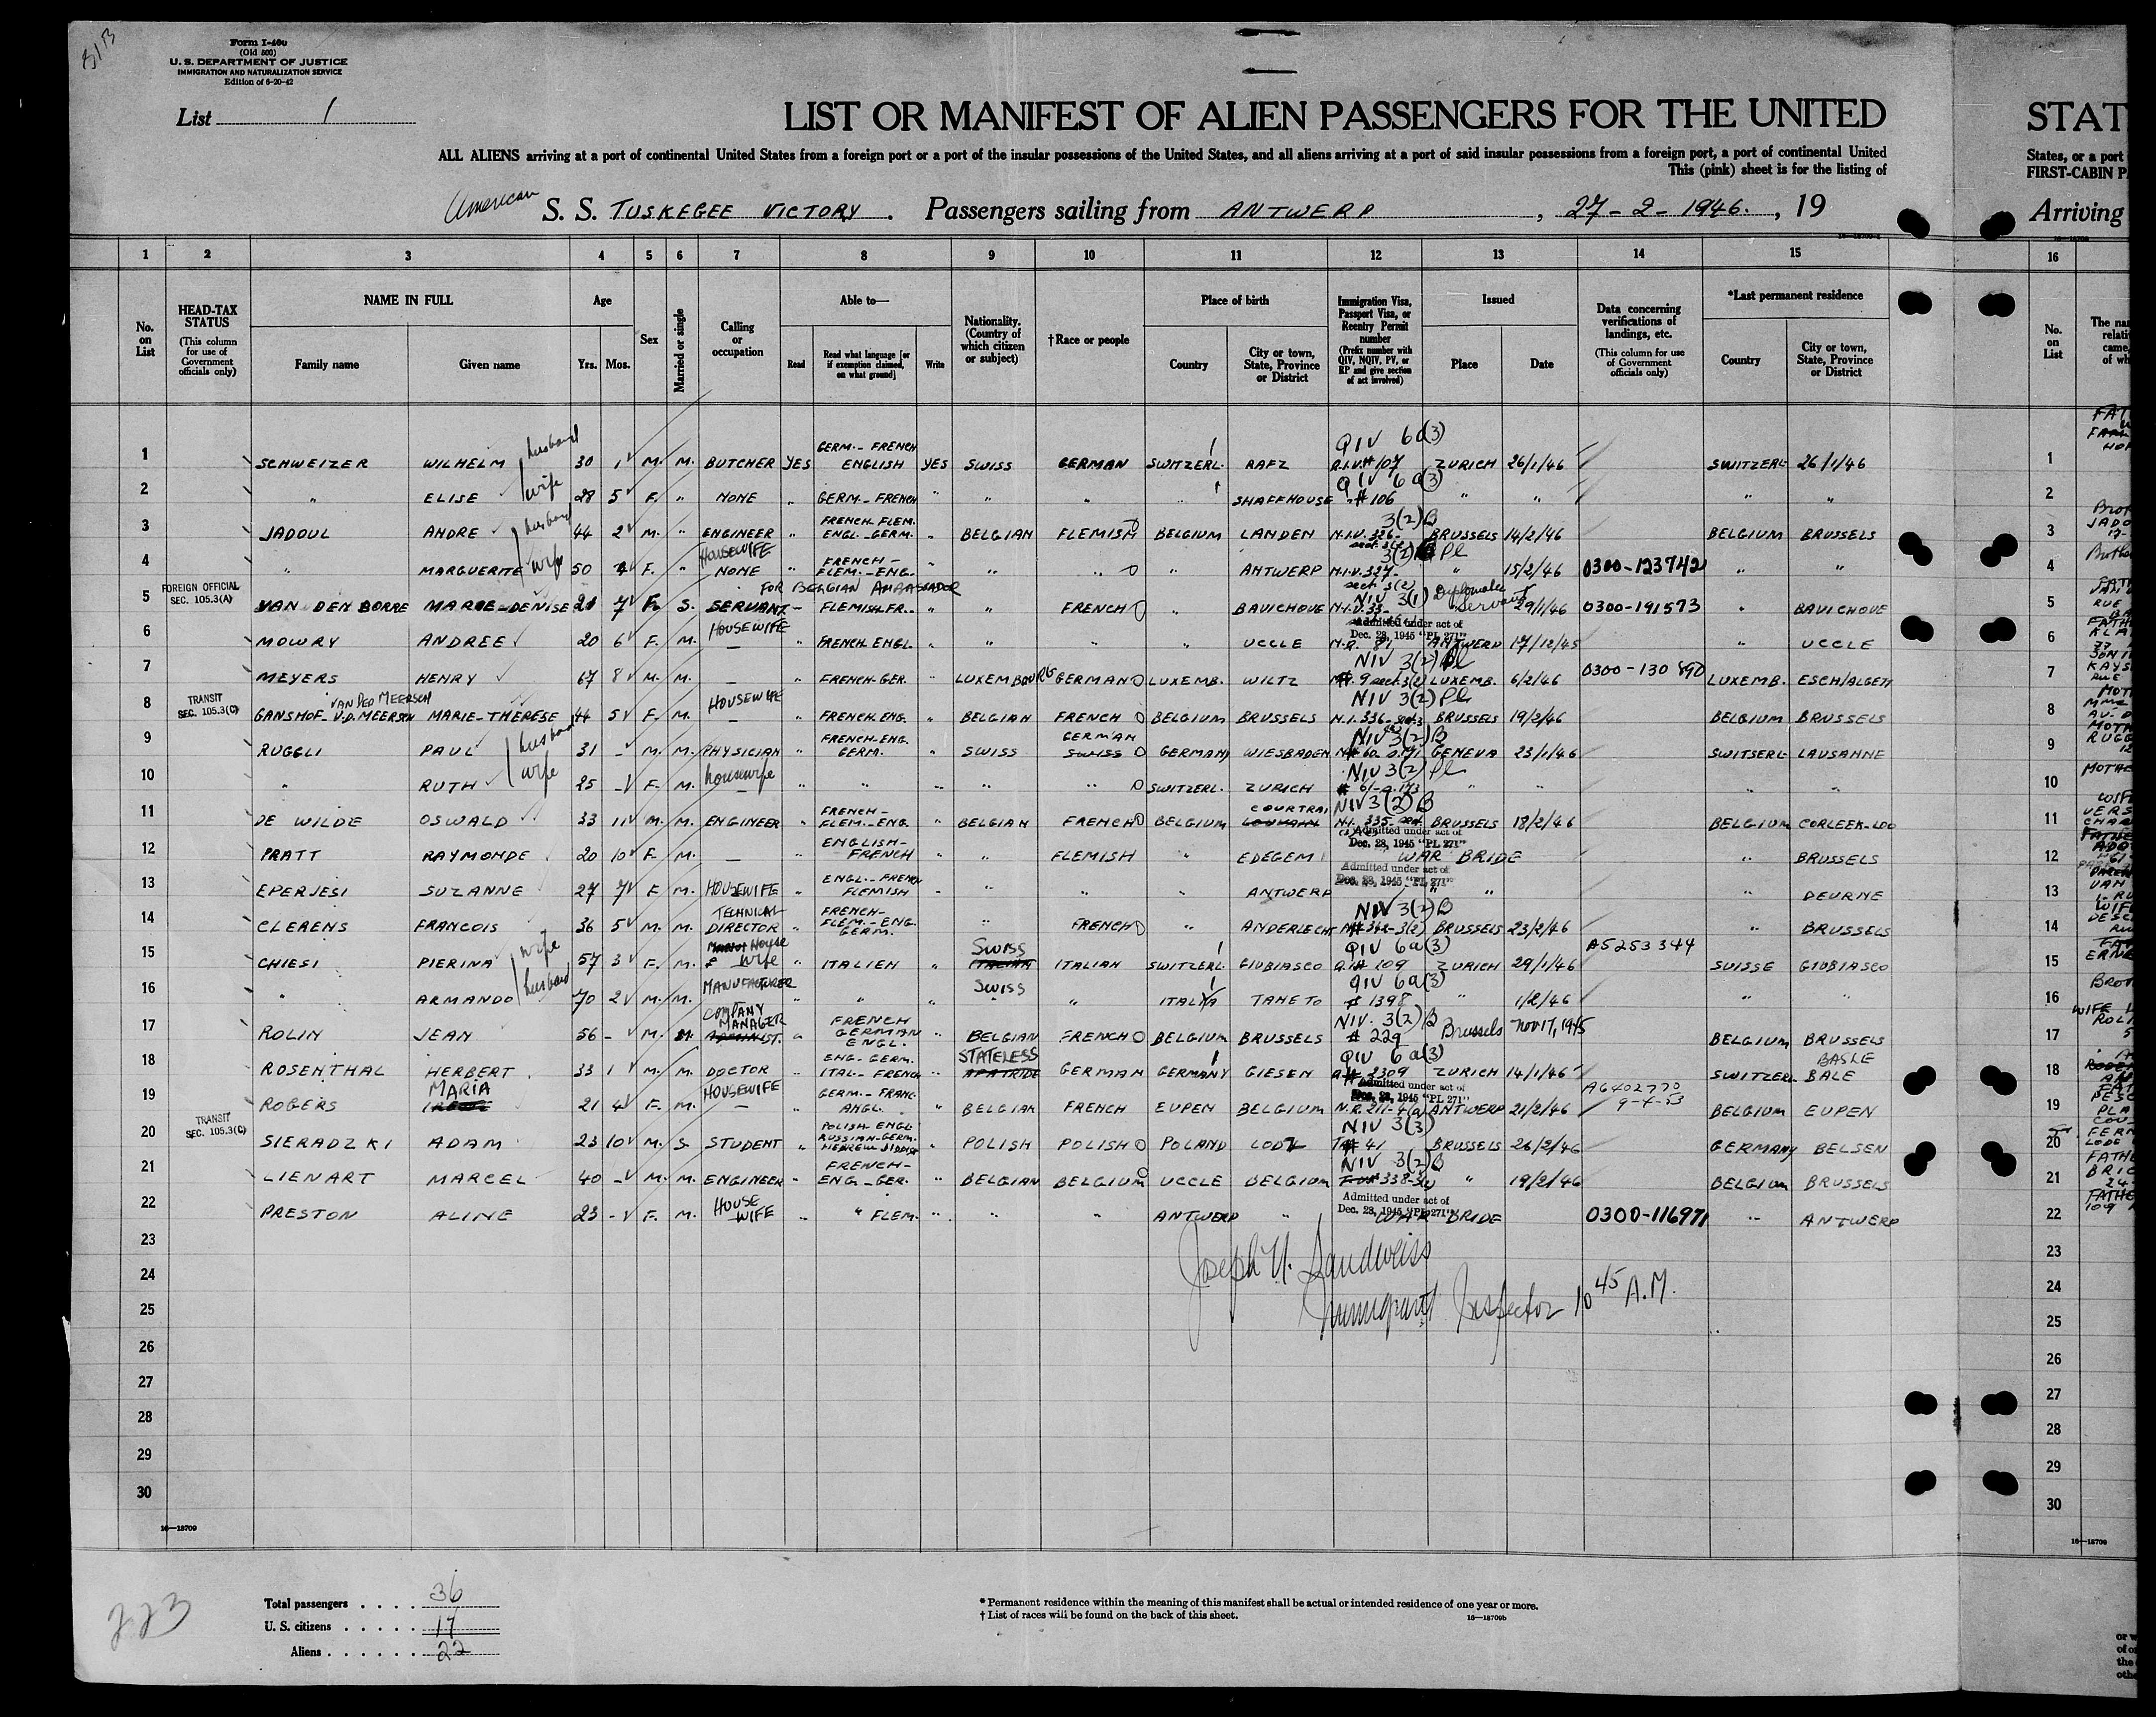 31B
Form I-400
(Old 500)
U. S. DEPARTMENT OF JUSTICE
IMMIGRATION AND NATURALIZATION SERVICE
Edition of 6-20-42
List 1
LIST OR MANIFEST OF ALIEN PASSENGERS FOR THE UNITED
STAT
ALL ALIENS arriving at a port of continental United States from a foreign port or a port of the insular possessions of the United States, and all aliens arriving at a port of said insular possessions from a foreign port, a port of continental United
States, or a port
This (pink) sheet is for the listing of
FIRST-CABIN P
American S. S. TUSKEGEE VICTORY. Passengers sailing from ANTWERP, 27-2-1946., 19
Arriving
1 2 3 4 5 6 7 8 9 10 11 12 13 14 15 16
No. on List
HEAD-TAX STATUS (This column for use of Government officials only)
NAME IN FULL Family name Given name
Age Yrs. Mos.
Sex
Married or single
Calling or occupation
Able to— Read Read what language [or if exemption claimed, on what ground] Write
Nationality. (Country of which citizen or subject)
†Race or people
Place of birth Country City or town, State, Province or District
Immigration Visa, Passport Visa, or Reentry Permit number (Prefix number with QIV, NQIV, PV, or RP and give section of act involved)
Issued Place Date
Data concerning verifications of landings, etc. (This column for use of Government officials only)
*Last permanent residence Country City or town, State, Province or District
No. on List
1 SCHWEIZER WILHELM husband 30 1 M. M. BUTCHER YES GERM.-FRENCH ENGLISH YES SWISS GERMAN SWITZERL. RAFZ QIV 6a(3) #107 ZURICH 26/1/46 SWITZERL 26/1/46
2 " ELISE wife 28 5 F. " NONE " GERM.-FRENCH " " " " SHAFFHOUSE QIV 6a(3) #106 " " " "
3 JADOUL ANDRE husband 44 2 M. " ENGINEER " FRENCH-FLEM. ENGL.-GERM. " BELGIAN FLEMISH BELGIUM LANDEN 3(2)B N.I.V. 326- BRUSSELS 14/2/46 BELGIUM BRUSSELS
4 " MARGUERITE wife 50 F. " HOUSEWIFE NONE " FRENCH- FLEM.-ENG. " " " " ANTWERP 3(2) Pl N.I.V. 327- " 15/2/46 0300-123742 " "
FOREIGN OFFICIAL SEC. 105.3(A)
5 VAN DEN BORRE MARIE-DENISE 21 7 F. S. SERVANT FOR BELGIAN AMBASSADOR - FLEMISH.FR.- " " FRENCH " BAVICHOVE NIV 3(1) N.I.V. 33- Diplomats Servant 29/1/46 0300-191573 " BAVICHOVE
6 MOWRY ANDREE 20 6 F. M. HOUSEWIFE — " FRENCH.ENGL. " " " " UCCLE Admitted under act of Dec. 28, 1945 "PL 271" ANTWERP 17/12/45 " UCCLE
7 MEYERS HENRY 67 8 M. M. — " FRENCH-GER. " LUXEMBOURG GERMAN LUXEMB. WILTZ NIV 3(2) Pl 9 sect.3(2) LUXEMB. 6/2/46 0300-130 890 LUXEMB. ESCH/ALGETT
TRANSIT SEC. 105.3(C)
8 GANSHOF-V.D.MEERSCH VAN DER MEERSCH MARIE-THERESE 44 5 F. M. HOUSEWIFE — " FRENCH.ENG. " BELGIAN FRENCH BELGIUM BRUSSELS NIV 3(2) Pl N.I. 336- BRUSSELS 19/2/46 BELGIUM BRUSSELS
9 RUGGLI PAUL husband 31 - M. M. PHYSICIAN " FRENCH-ENG. GERM. " SWISS GERMAN SWISS GERMANY WIESBADEN NIV 3(2)B GENEVA 23/1/46 SWITSERL LAUSANNE
10 " RUTH wife 25 - F. M. housewife — " " " " " SWITZERL. ZURICH NIV 3(2) Pl # 61- " " " "
11 DE WILDE OSWALD 33 11 M. M. ENGINEER " FRENCH- FLEM.-ENG. " BELGIAN FRENCH BELGIUM COURTRAI LOUVAIN NIV 3(2) B N.I. 335- BRUSSELS 18/2/46 BELGIUM CORLEEK-LOO
12 PRATT RAYMONDE 20 10 F. M. — " ENGLISH- FRENCH " " FLEMISH " EDEGEM Admitted under act of Dec. 28, 1945 "PL 271" WAR BRIDE " BRUSSELS
13 EPERJESI SUZANNE 27 7 F. M. HOUSEWIFE " ENGL.-FRENCH FLEMISH " " " " ANTWERP Admitted under act of Dec. 28, 1945 "PL 271" " " " DEURNE
14 CLERENS FRANCOIS 36 5 M. M. TECHNICAL DIRECTOR " FRENCH- FLEM.-ENG. GERM. " FRENCH " ANDERLECHT NIV 3(2)B # 342-3(2) BRUSSELS 23/2/46 " BRUSSELS
15 CHIESI PIERINA wife 57 3 F. M. House Wife " ITALIEN " SWISS ITALIAN ITALIAN SWITZERL. GIUBIASCO QIV 6a(3) 109 ZURICH 29/1/46 A5253344 SUISSE GIUBIASCO
16 " ARMANDO husband 70 2 M. M. MANUFACTURER " " " SWISS " ITALY TANETO QIV 6a(3) # 1398 " 1/2/46 " "
17 ROLIN JEAN 56 - M. M. COMPANY MANAGER " FRENCH GERMAN ENGL. " BELGIAN FRENCH BELGIUM BRUSSELS NIV. 3(2)B # 229 Brussels Nov 17, 1945 BELGIUM BRUSSELS
18 ROSENTHAL HERBERT 33 1 M. M. DOCTOR " ENG.-GERM. ITAL-FRENCH " STATELESS APATRIDE GERMAN GERMANY GIESEN QIV 6a(3) # 2309 ZURICH 14/1/46 SWITZER. BASLE BALE
19 ROGERS MARIA 21 4 F. M. HOUSEWIFE — " GERM.-FRANC. ANGL. " BELGIAN FRENCH EUPEN BELGIUM Admitted under act of Dec. 28, 1945 "PL 271" N.R. 211-4(a) ANTWERP 21/2/46 A6402770 9-4-53 BELGIUM EUPEN
TRANSIT SEC. 105.3(C)
20 SIERADZKI ADAM 23 10 M. S STUDENT " POLISH ENGL RUSSIAN-GERM. HEBREW JIDDISH " POLISH POLISH POLAND LODZ NIV 3(3) # 41 BRUSSELS 26/2/46 GERMANY BELSEN
21 LIENART MARCEL 40 - M. M. ENGINEER " FRENCH- ENG-GER. " BELGIAN BELGIUM UCCLE BELGIUM NIV 3(2)B 338- " 19/2/46 BELGIUM BRUSSELS
22 PRESTON ALINE 23 - F. M. HOUSE WIFE " " FLEM. " " " ANTWERP " Admitted under act of Dec. 28, 1945 "PL 271" WAR BRIDE 0300-116971 " ANTWERP
23
24
25
26
27
28
29
30
Joseph H. Sandweiss
Immigrant Inspector 10 45 A.M.
16—18709
16—18709
223
Total passengers . . . . 36
U. S. citizens . . . . . 17
Aliens . . . . . . 22
* Permanent residence within the meaning of this manifest shall be actual or intended residence of one year or more.
† List of races will be found on the back of this sheet.
16—18709b